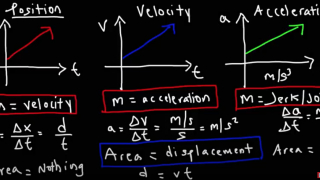 Position
t
m = velocity
= Δx/Δt = d/t
Area = Nothing
Velocity
v
t
m = acceleration
a = Δv/Δt = m/s/s = m/s²
Area = displacement
d = vt
a
t
m/s³
m = Jerk/Jo
Δa/Δt =
Area =